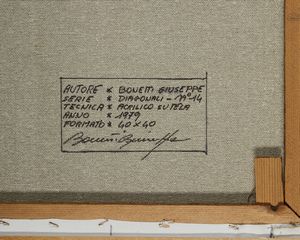 AUTORE * BONETTI GIUSEPPE
SERIE * DIAGONALI - N°14
TECNICA * ACRILICO SU TELA
ANNO * 1979
FORMATO * 40 x 40
Bonetti Giuseppe